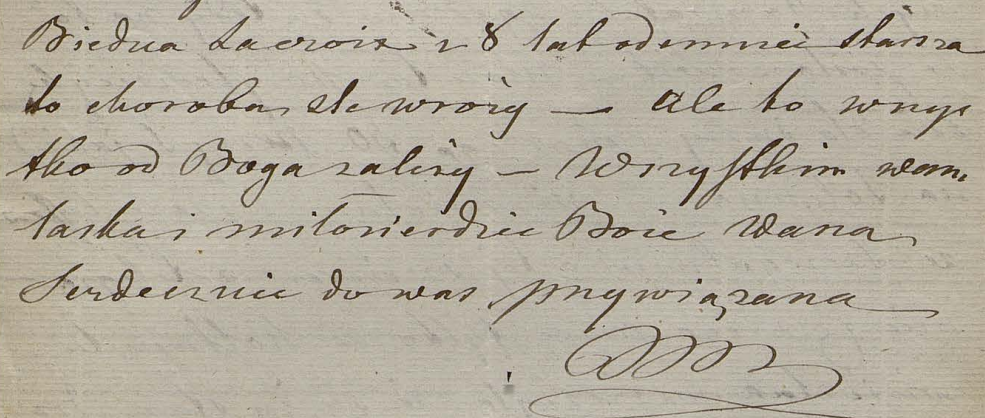 Biedna Lacroix 8 lat odemnie starsza
to choroba źle wroży — Ale to wszys
tko od Boga zależy — Wszystkim wam
łaska i miłosierdzie Boże Wasza
Serdecznie do was przywiązana